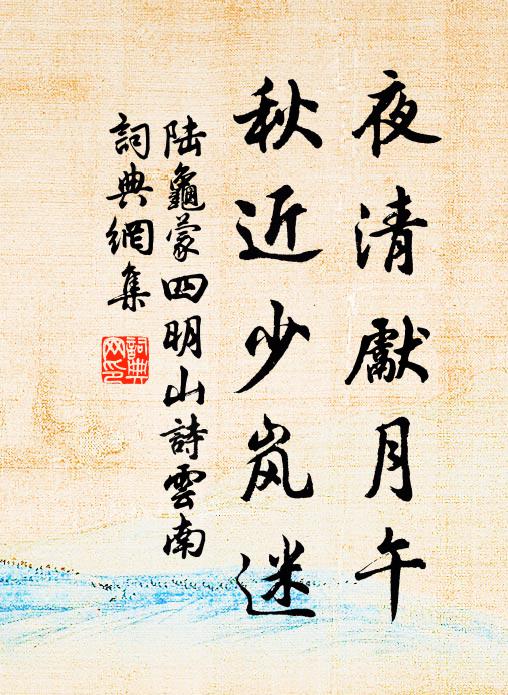 夜清獻月午
秋近少岚迷
陆龜蒙四明山詩雲南
詞典網集
詞典网印